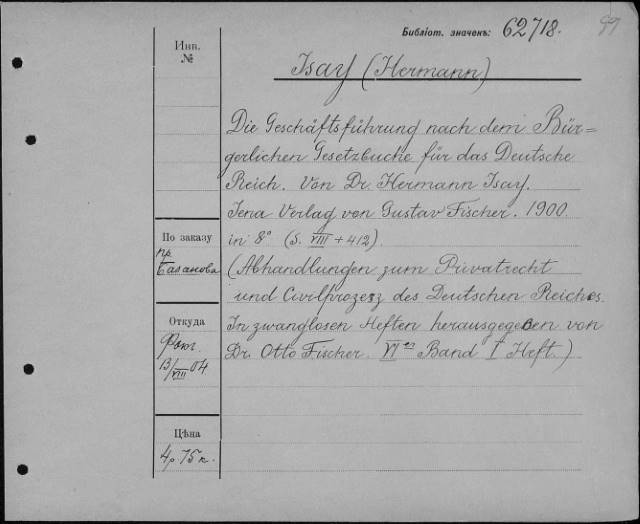 Библіот. значекъ: 62718.
Инв.
№
Isay (Hermann)
Die Geschäftsführung nach dem Bür=
gerlichen Gesetzbuche für das Deutsche
Reich. Von Dr. Hermann Isay.
Jena Verlag von Gustav Fischer. 1900.
in 8° (S. VIII + 412).
(Abhandlungen zum Privatrecht
und Civilprozesz des Deutschen Reiches.
In zwanglosen Heften herausgegeben von
Dr. Otto Fischer. VI Band I Heft.)
По заказу
пр.
Откуда
13/VIII 04
Цѣна
4 р. 75 к.